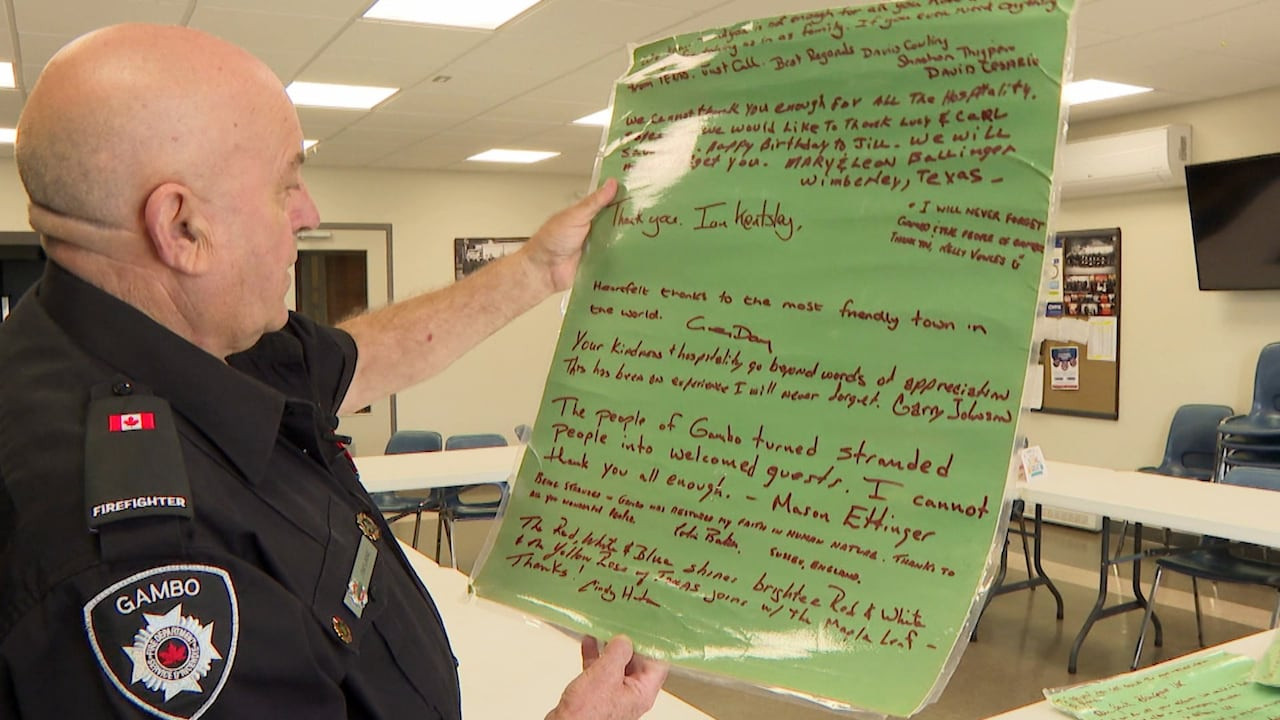 is not enough for all you
as in as family. If you ever need anything
from Texas. Just Call. Best Regards David Cowling
Shashan Thigpen
DAVID CESARIO
We cannot thank you enough for ALL The Hospitality.
we would Like To Thank Lucy & CARL
Happy Birthday to Jill. We will
get you. MARY & Leon Ballinger
Wimberley, Texas -
Thank you. Ian
" I WILL NEVER FORGET
GAMBO & THE PEOPLE OF GAMBO
THANK YOU, KELLY VOWLES "
Heartfelt thanks to the most friendly town in
the world.
Your kindness + hospitality go beyond words of appreciation
This has been an experience I will never forget. Garry Johnson
The people of Gambo turned stranded
people into welcomed guests. I cannot
thank you all enough. - Mason Ettinger
BEING STRANDED IN GAMBO HAS RESTORED MY FAITH IN HUMAN NATURE. THANKS TO
ALL YOU WONDERFUL PEOPLE.
SURREY, ENGLAND.
The Red, White & Blue shines brighter Red & White
& the Yellow Rose of Texas joins w/ the Maple Leaf -
Thanks! Cindy
FIREFIGHTER
GAMBO
FIRE DEPARTMENT